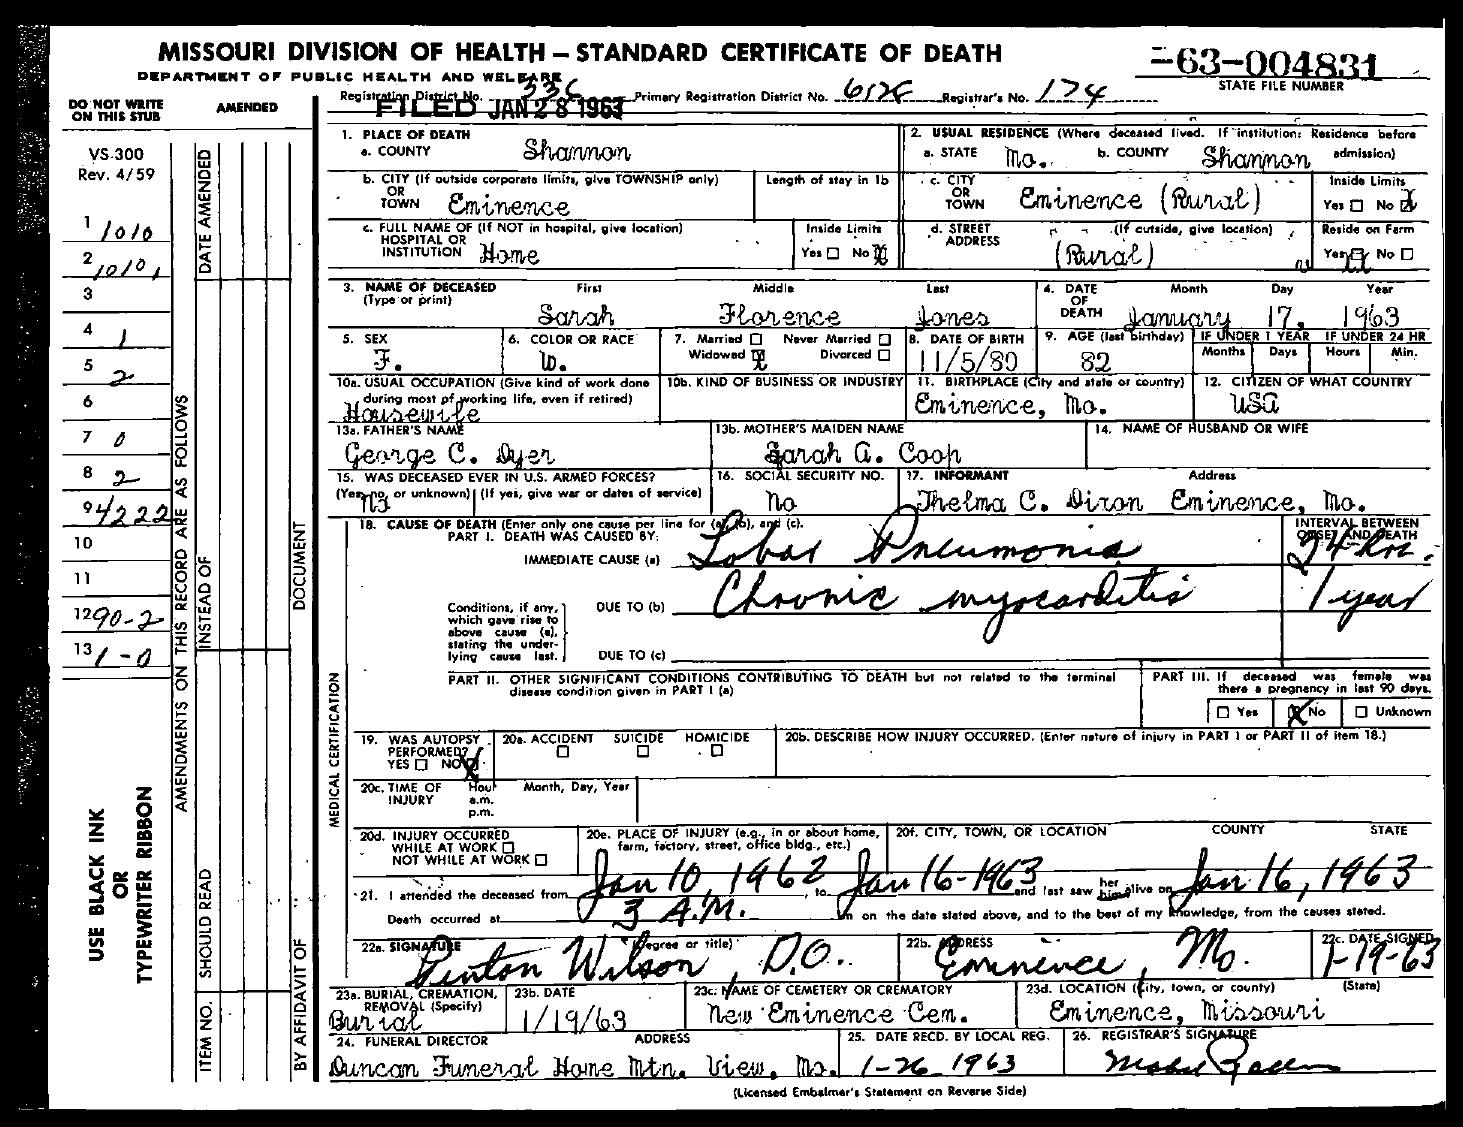 MISSOURI DIVISION OF HEALTH — STANDARD CERTIFICATE OF DEATH
-63-004831
DEPARTMENT OF PUBLIC HEALTH AND WELFARE
STATE FILE NUMBER
Registration District No. 336 Primary Registration District No. 6126 Registrar's No. 174
FILED JAN 28 1963
DO NOT WRITE ON THIS STUB
AMENDED
VS 300
Rev. 4/59
1 1010
2 10101
3
4 1
5 2
6
7 0
8 2
9 4222
10
11
12 90-2
13 1-0
USE BLACK INK
OR
TYPEWRITER RIBBON
AMENDMENTS ON THIS RECORD ARE AS FOLLOWS
DATE AMENDED
INSTEAD OF
SHOULD READ
ITEM NO.
DOCUMENT
BY AFFIDAVIT OF
MEDICAL CERTIFICATION
1. PLACE OF DEATH
a. COUNTY Shannon
2. USUAL RESIDENCE (Where deceased lived. If institution: Residence before admission)
a. STATE Mo. b. COUNTY Shannon
b. CITY (If outside corporate limits, give TOWNSHIP only) OR TOWN Eminence
Length of stay in 1b
c. CITY OR TOWN Eminence (Rural)
Inside Limits
Yes ☐ No ☒
c. FULL NAME OF (If NOT in hospital, give location) HOSPITAL OR INSTITUTION Home
Inside Limits
Yes ☐ No ☒
d. STREET ADDRESS (If outside, give location) (Rural)
Reside on Farm
Yes ☒ No ☐
3. NAME OF DECEASED (Type or print) First Middle Last
Sarah Florence Jones
4. DATE OF DEATH Month Day Year
January 17, 1963
5. SEX F.
6. COLOR OR RACE W.
7. Married ☐ Never Married ☐
Widowed ☒ Divorced ☐
8. DATE OF BIRTH 11/5/80
9. AGE (last birthday) 82
IF UNDER 1 YEAR Months Days
IF UNDER 24 HR Hours Min.
10a. USUAL OCCUPATION (Give kind of work done during most of working life, even if retired) Housewife
10b. KIND OF BUSINESS OR INDUSTRY
11. BIRTHPLACE (City and state or country) Eminence, Mo.
12. CITIZEN OF WHAT COUNTRY USA
13a. FATHER'S NAME George C. Dyer
13b. MOTHER'S MAIDEN NAME Sarah A. Coop
14. NAME OF HUSBAND OR WIFE
15. WAS DECEASED EVER IN U.S. ARMED FORCES? (Yes, no, or unknown) (If yes, give war or dates of service) No
16. SOCIAL SECURITY NO. No
17. INFORMANT Address
Thelma C. Dixon Eminence, Mo.
18. CAUSE OF DEATH (Enter only one cause per line for (a), (b), and (c).
PART I. DEATH WAS CAUSED BY:
INTERVAL BETWEEN ONSET AND DEATH
IMMEDIATE CAUSE (a) Lobar Pneumonia 24 hrs.
Conditions, if any, which gave rise to above cause (a), stating the underlying cause last.
DUE TO (b) Chronic myocarditis 1 year
DUE TO (c)
PART II. OTHER SIGNIFICANT CONDITIONS CONTRIBUTING TO DEATH but not related to the terminal disease condition given in PART I (a)
PART III. If deceased was female was there a pregnancy in last 90 days.
☐ Yes ☒ No ☐ Unknown
19. WAS AUTOPSY PERFORMED? YES ☐ NO ☒
20a. ACCIDENT ☐ SUICIDE ☐ HOMICIDE ☐
20b. DESCRIBE HOW INJURY OCCURRED. (Enter nature of injury in PART I or PART II of item 18.)
20c. TIME OF INJURY Hour a.m. p.m. Month, Day, Year
20d. INJURY OCCURRED
WHILE AT WORK ☐
NOT WHILE AT WORK ☐
20e. PLACE OF INJURY (e.g., in or about home, farm, factory, street, office bldg., etc.)
20f. CITY, TOWN, OR LOCATION COUNTY STATE
21. I attended the deceased from Jan 10, 1962, to Jan 16-1963 and last saw her him alive on Jan 16, 1963
Death occurred at 3 A.M. on the date stated above, and to the best of my knowledge, from the causes stated.
22a. SIGNATURE (Degree or title) Wilson, D.O.
22b. ADDRESS Eminence, Mo.
22c. DATE SIGNED 1-19-63
23a. BURIAL, CREMATION, REMOVAL (Specify) Burial
23b. DATE 1/19/63
23c. NAME OF CEMETERY OR CREMATORY New Eminence Cem.
23d. LOCATION (City, town, or county) (State) Eminence, Missouri
24. FUNERAL DIRECTOR ADDRESS
Duncan Funeral Home Mtn. View, Mo.
25. DATE RECD. BY LOCAL REG. 1-26-1963
26. REGISTRAR'S SIGNATURE
(Licensed Embalmer's Statement on Reverse Side)